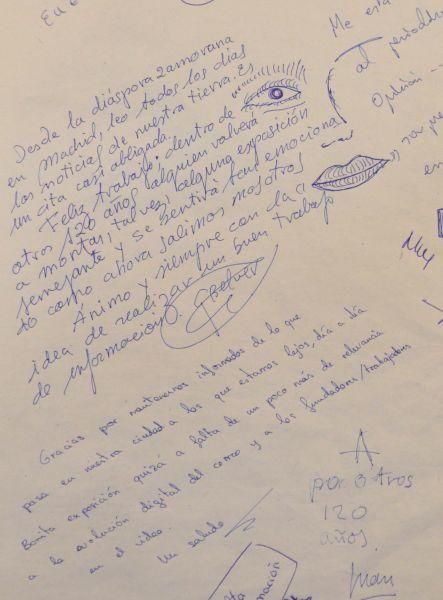 Me está
al periódico
Opinión
Desde la diáspora zamorana
en Madrid, leo todos los días
las noticias de nuestra tierra. Es
un cita casi obligada.
Feliz trabajo; dentro de
otros 120 años alguien volverá
a montar, tal vez, alguna exposición
semejante y se sentirá tan emociona
do como ahora salimos nosotros
Ánimo y siempre con la
idea de realizar un buen trabajo
de información.
Muy
Gracias por mantenernos informados de lo que
pasa en nuestra ciudad a los que estamos lejos, día a día
Bonita exposición quizá a falta de un poco más de relevancia
a la evolución digital del correo y a los fundadores/trabajadores
en el video.
Un saludo
A
por otros
120
años.
Juan